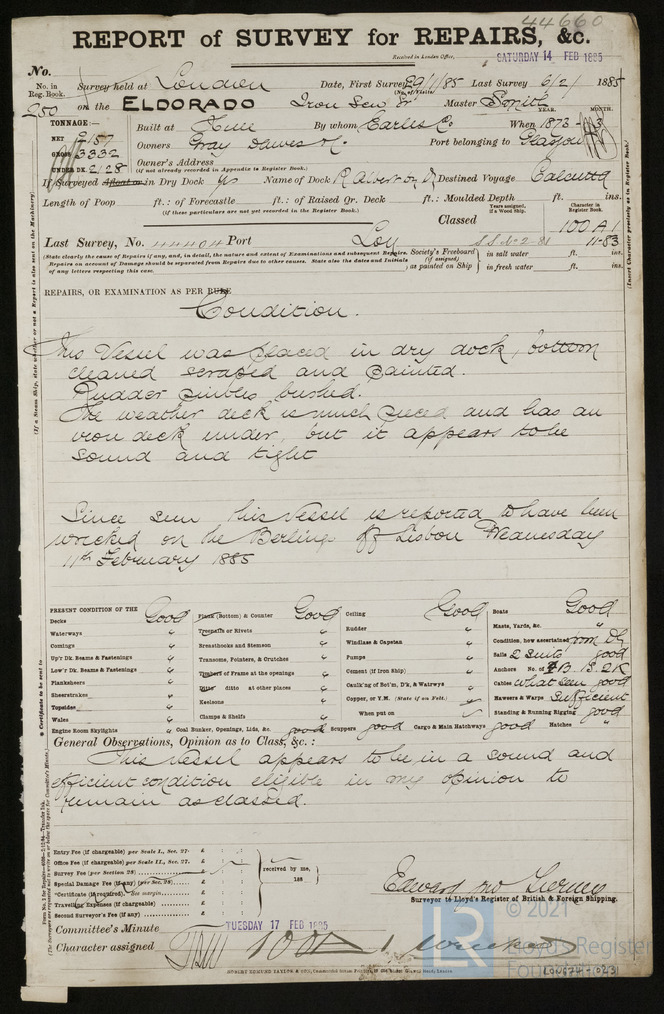 44660
REPORT of SURVEY for REPAIRS, &c.
Received in London Office, SATURDAY 14 FEB 1885
No.
No. in Reg. Book. Survey held at London Date, First Survey 29/1/85 Last Survey 6/2/ 1885
250 on the ELDORADO Iron Scw Str Master Smith
TONNAGE:— YEAR. MONTH.
NET 2157 Built at Hull By whom Earles Co When 1873-3
GROSS 3332 Owners Gray Dawes & Co Port belonging to Glasgow
UNDER DK. 2128 Owner's Address
(if not already recorded in Appendix to Register Book.)
If Surveyed Afloat or in Dry Dock Yes Name of Dock R Albert Dry D Destined Voyage Calcutta
Length of Poop ft.: of Forecastle ft.: of Raised Qr. Deck ft.: Moulded Depth ft. ins.
(if these particulars are not yet recorded in the Register Book.) Years assigned, if a Wood Ship. Character in Register Book.
Classed 100 A 1
Last Survey, No. 44404 Port Lon SS No 2-81 11-83
(State clearly the cause of Repairs if any, and, in detail, the nature and extent of Examinations and subsequent Repairs. Society's Freeboard in salt water ft. ins.
Repairs on account of Damage should be separated from Repairs due to other causes. State also the dates and Initials (if assigned)
of any letters respecting this case. as painted on Ship in fresh water ft. ins.
REPAIRS, OR EXAMINATION AS PER RULE
Condition.
This Vessel was placed in dry dock, bottom
cleaned scraped and painted.
Rudder pintles bushed.
The weather deck is much pieced and has an
iron deck under, but it appears to be
sound and tight
Since seen this Vessel is reported to have been
wrecked on the Berlings off Lisbon Wednesday
11th February 1885
PRESENT CONDITION OF THE
Decks Good Plank (Bottom) & Counter Good Ceiling Good Boats Good
Waterways " Treenails or Rivets " Rudder " Masts, Yards, &c. "
Comings " Breasthooks and Stemson " Windlass & Capstan " Condition, how ascertained from Dk
Up'r Dk. Beams & Fastenings " Transoms, Pointers, & Crutches " Pumps " Sails 2 Suits good
Low'r Dk. Beams & Fastenings " Timbers of Frame at the openings " Cement (if Iron Ship) " Anchors No. of 4B 1S 2K
Planksheers " Ditto ditto at other places " Caulking of Bot'm, D'k, & Waterways " Cables what seen good
Sheerstrakes " Keelsons " Copper, or Y.M. (State if on Felt.) Hawsers & Warps Sufficient
Topsides " Clamps & Shelfs " When put on Standing & Running Rigging good
Wales "
Engine Room Skylights " Coal Bunker, Openings, Lids, &c. good Scuppers good Cargo & Main Hatchways good Hatches "
General Observations, Opinion as to Class, &c.:
This Vessel appears to be in a sound and
efficient condition eligible in my opinion to
remain as classed.
Entry Fee (if chargeable) per Scale I., Sec. 27. £ : :
Office Fee (if chargeable) per Scale II., Sec. 27. £ : :
Survey Fee (per Section 28) £ : : received by me,
Special Damage Fee (if any) (per Sec. 28) £ : : 188
*Certificate (if required). See margin.
Travelling Expenses (if chargeable) £ : :
Second Surveyor's Fee (if any) £ : :
Surveyor to Lloyd's Register of British & Foreign Shipping.
Committee's Minute TUESDAY 17 FEB 1885
Character assigned 100A 1 Wrecked
LR © 2021
Lloyd's Register
Foundation
LON674-0231